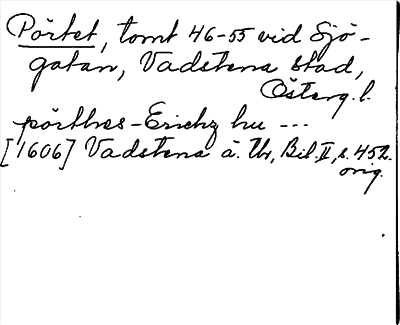 Pörtet, tomt 46-55 vid Sjö-
gatan, Vadstena stad,
Österg. l.
pörthes-Erichz hu ---
[1606] Vadstena ä. Ur, Bil. II, s. 452.
orig.